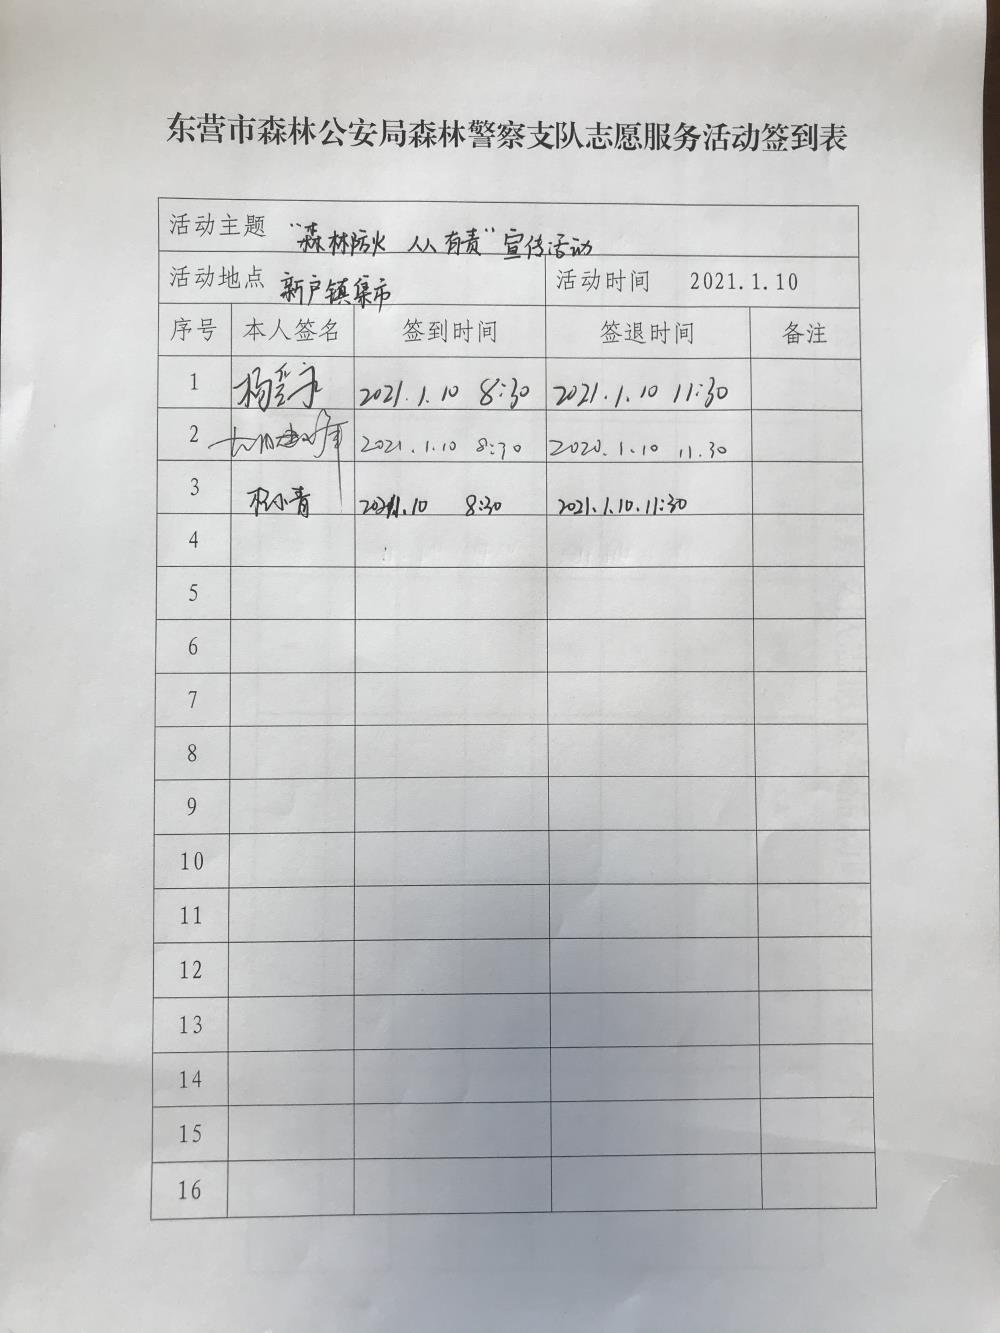 东营市森林公安局森林警察支队志愿服务活动签到表
活动主题 “森林防火 人人有责”宣传活动
活动地点 新户镇集市 活动时间 2021.1.10
序号 本人签名 签到时间 签退时间 备注
1 2021.1.10 8:30 2021.1.10 11:30
2 2021.1.10 8:30 2020.1.10 11.30
3 8:30 2021.1.10.11:30
4
5
6
7
8
9
10
11
12
13
14
15
16